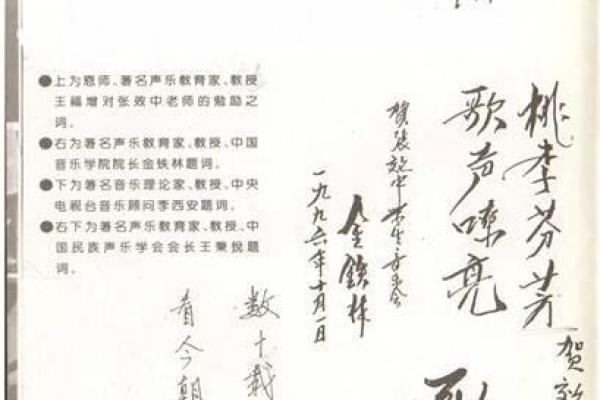 ●上为恩师、著名声乐教育家、教授
王福增对张效中老师的勉励之
词。
●右为著名声乐教育家、教授、中国
音乐学院院长金铁林题词。
●下为著名音乐理论家、教授、中央
电视台音乐顾问李西安题词。
●右下为著名声乐教育家、教授、中
国民族声乐学会会长王秉锐题
词。
桃李芬芳
歌声嘹亮
贺张效中学生音乐会
金铁林
一九九六年十月一日
数十载
看今朝
贺